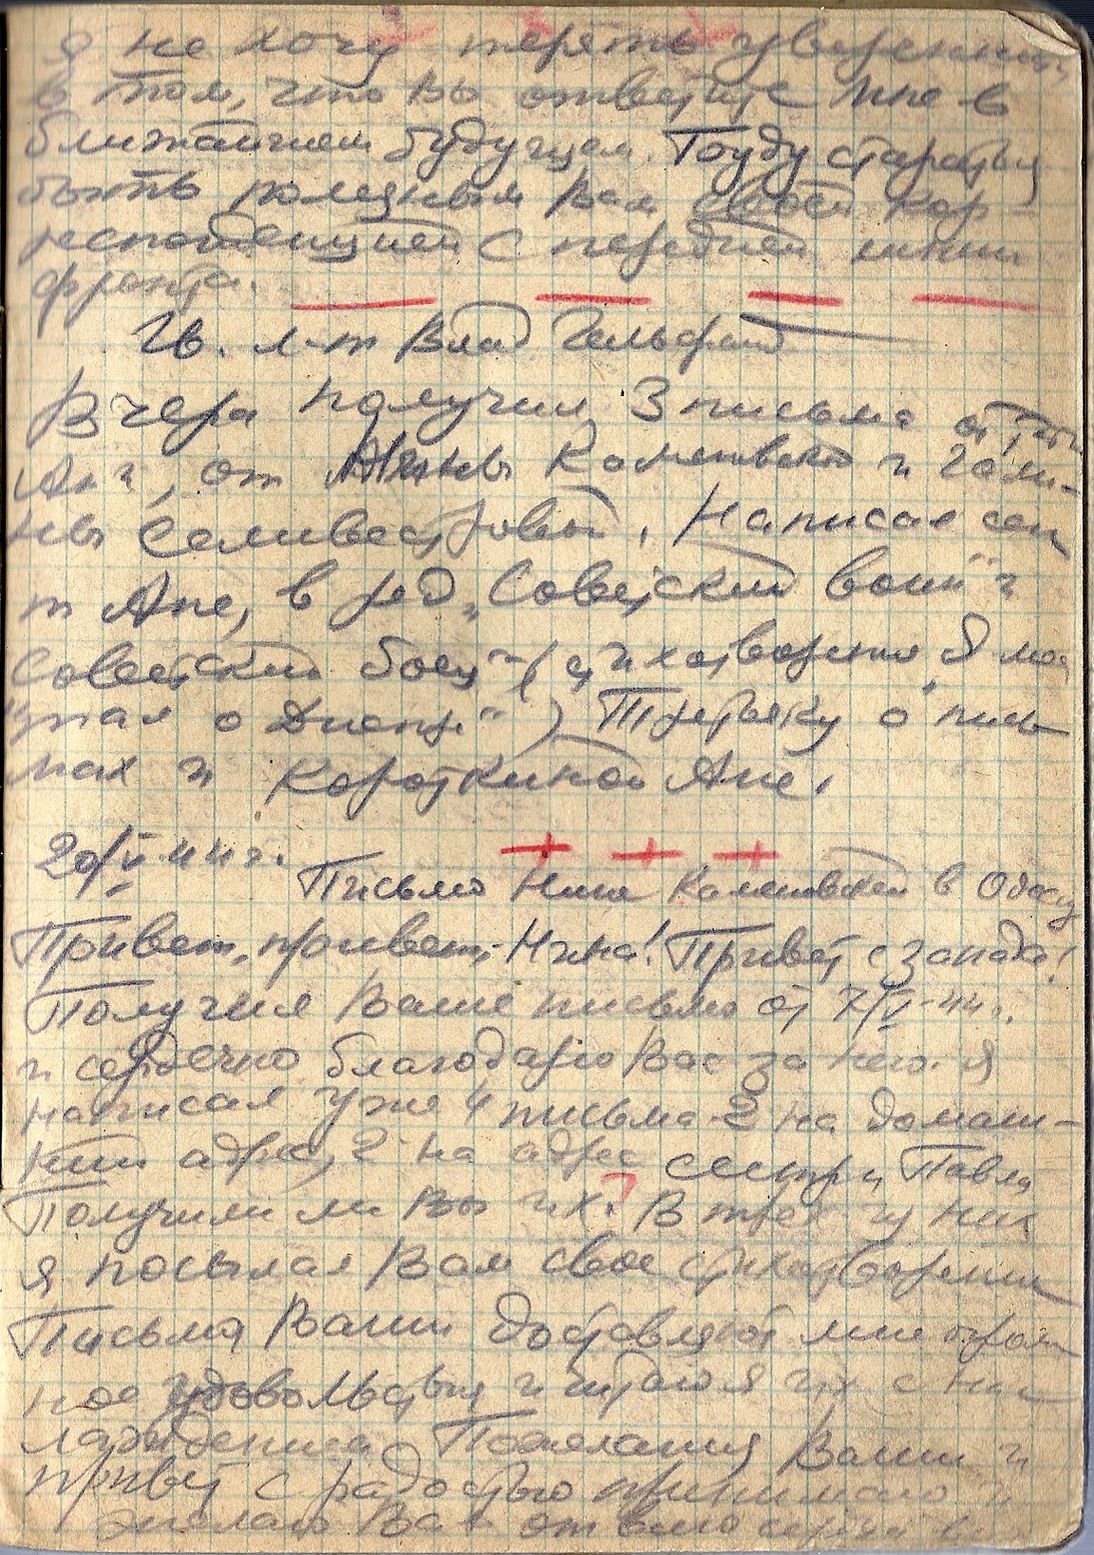 я не хочу терять уверенности
в том, что Вы ответите мне в
ближайшем будущем. Буду стараться
быть полезным Вам своей кор-
респонденцией с передней линии
фронта.
Гв. л-т Влад Гельфанд
Вчера получил 3 письма от тети
Ани, от Нины Каменовской и Гали-
ны Селивестровой. Написал сам
т Ане, в ред „Советский воин" и
Советский боец" (стихотворение „Я мо
о Днепр") Третьяку о пись-
мах и Короткиной Ане.
20/V 44 г.
Письмо Нине Каменовской в Одессу
Привет, привет, Нина! Привет с запада!
Получил Ваше письмо от 7/V-44 г.
и сердечно благодарю Вас за него. Я
написал уже 4 письма 2 на домаш-
ний адрес, 2 на адрес сестры Павла
Получили ли Вы их? В трех из них
я посылал Вам свое стихотворение
Письма Ваши доставляют мне огром
ное удовольствие и читаю я их с нас
лаждением. Пожелания Ваши и
привет с радостью принимаю и
желаю Вам от всего сердца